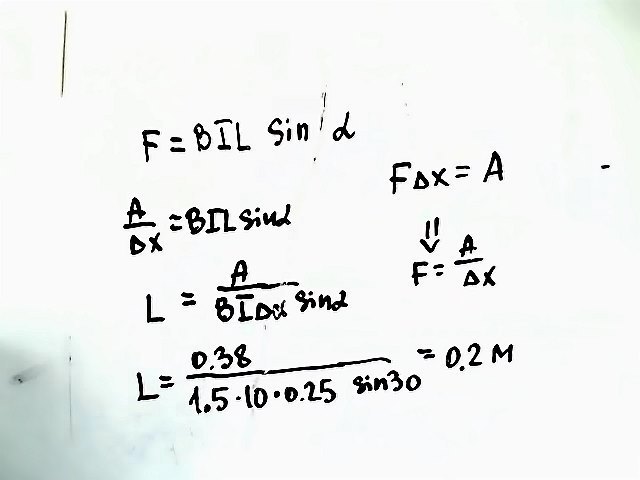 F = BIL sin α
FΔx = A
A/Δx = BIL sinα
⇓
F = A/Δx
L = A/BIΔx sinα
L = 0.38/1.5·10·0.25 sin30 = 0.2 м